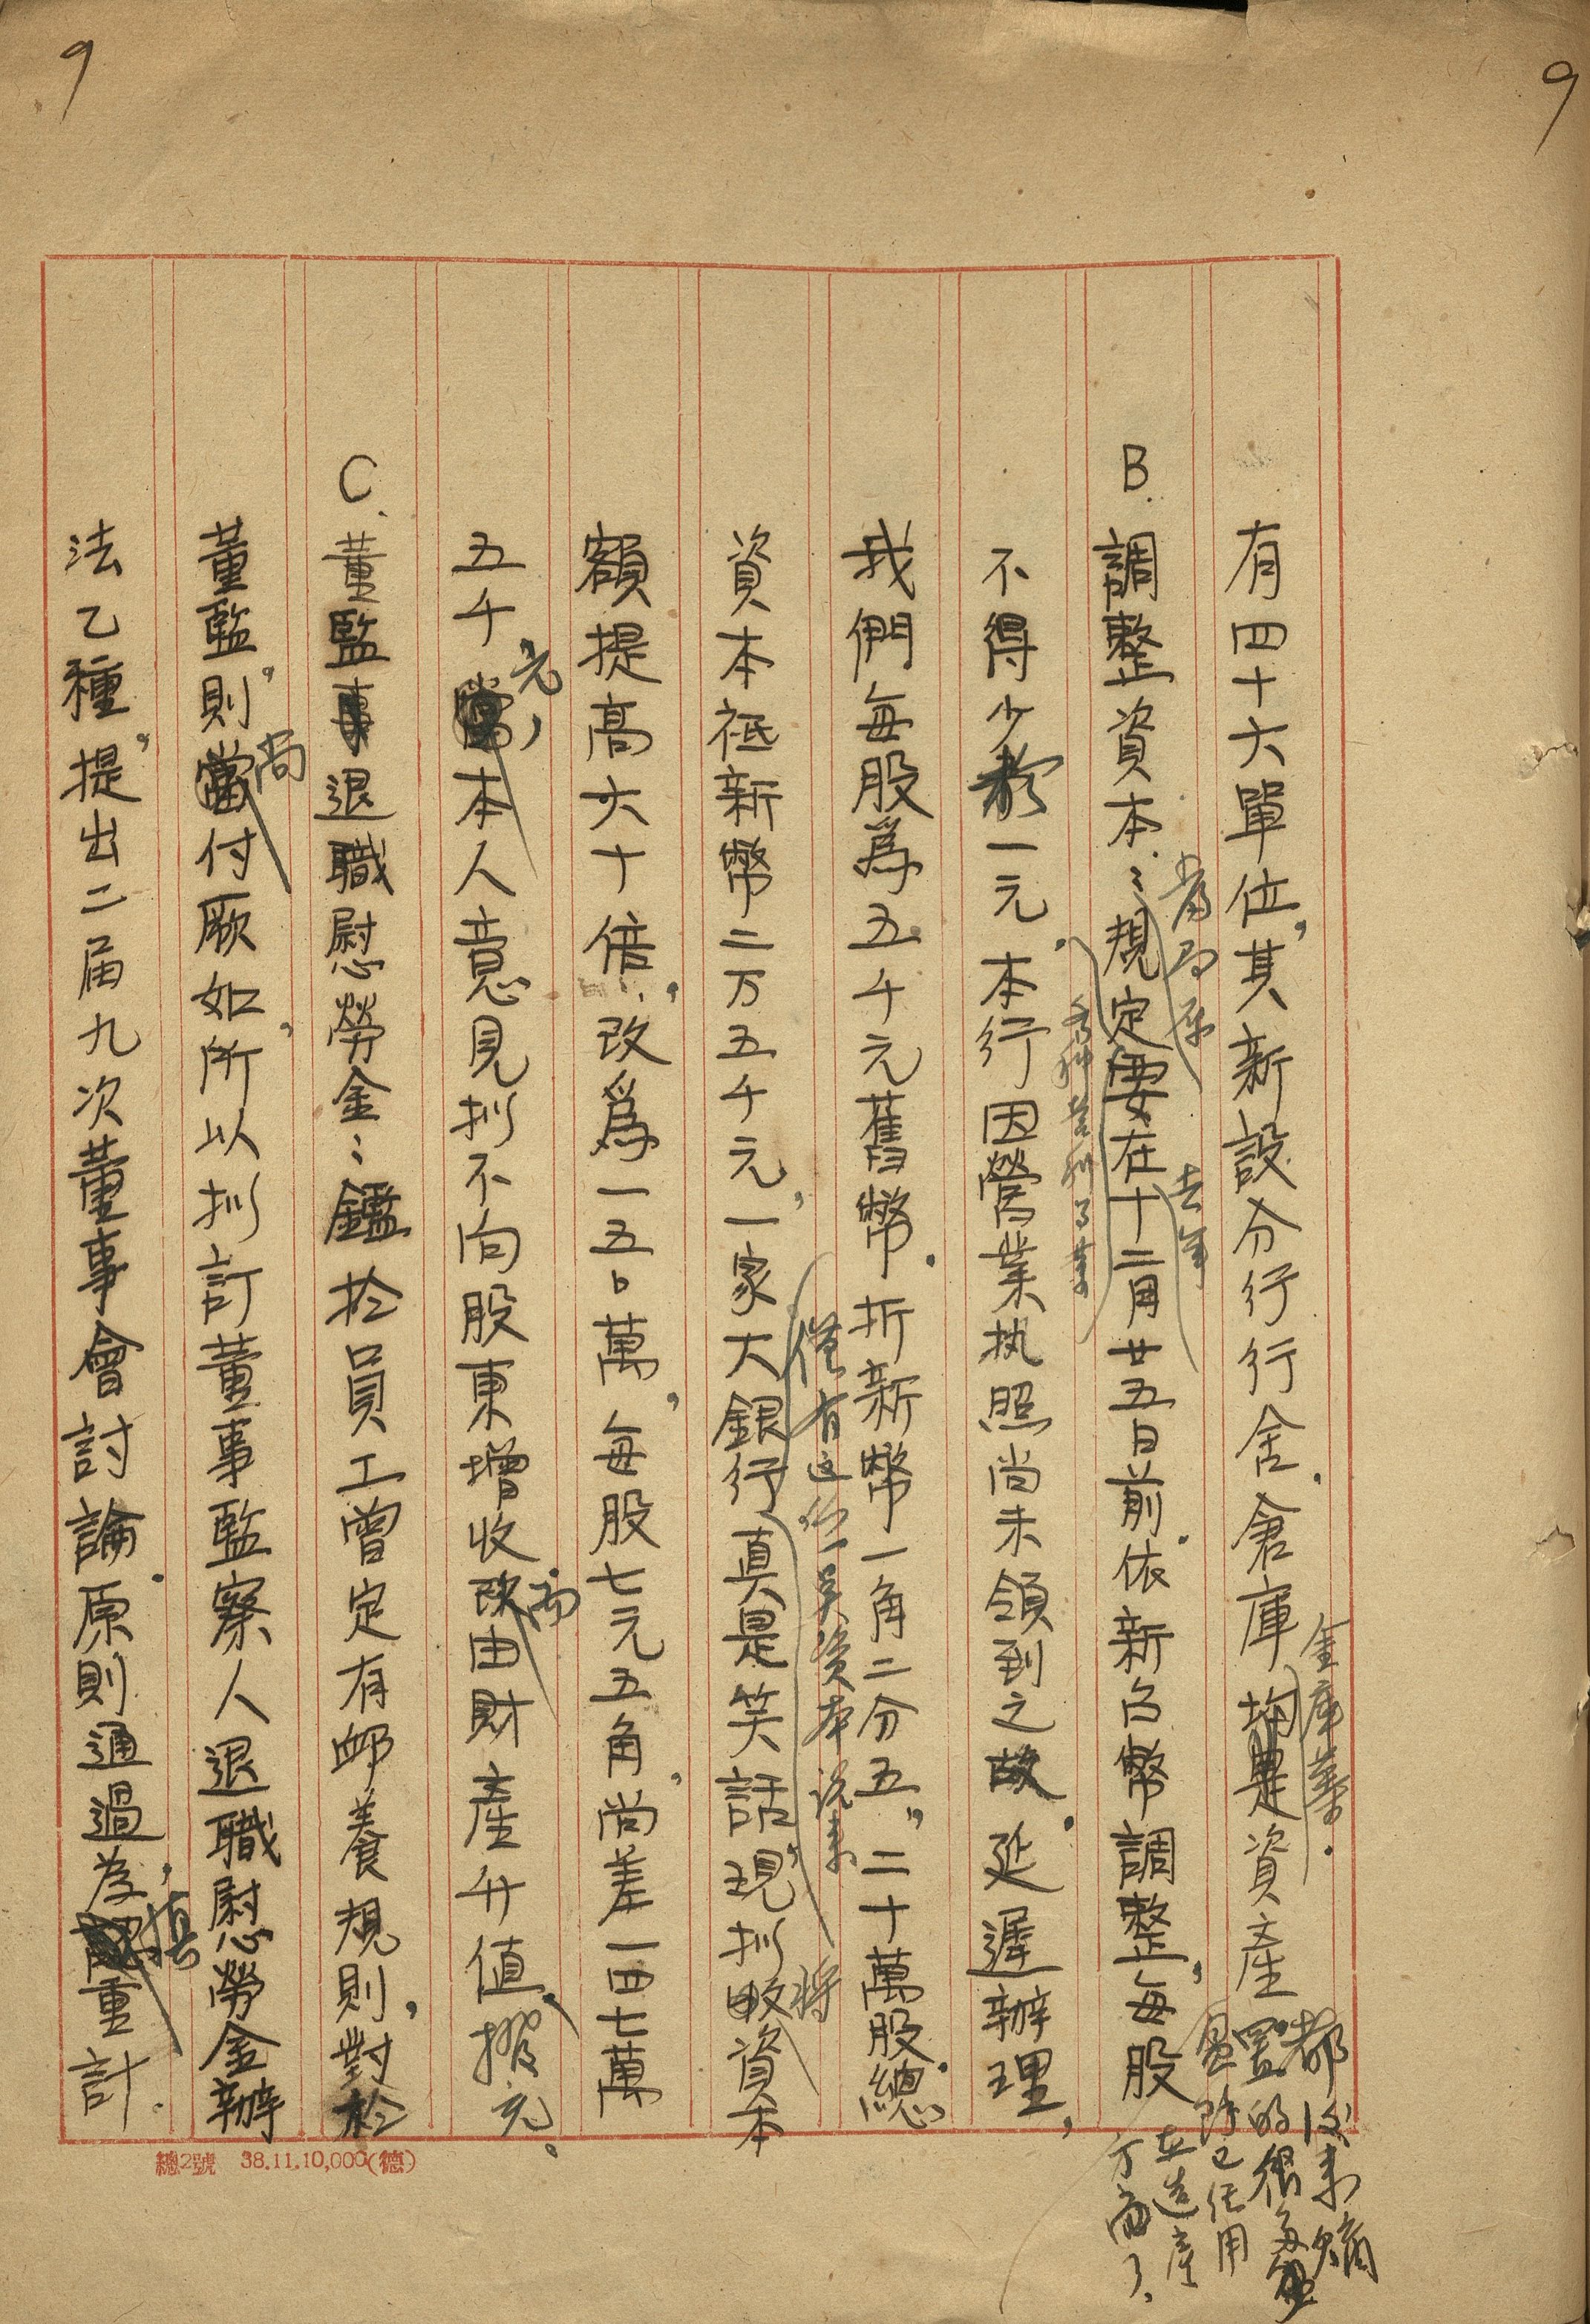 9
9
有四十六單位，其新設分行行舍．倉庫均是資產
金庫等．
都後來購
置的很多
盈除已經用
在造產
方面了．
B. 調整資本：規定要在十二月廿五日前．依新台幣調整，每股
當局原
去年
不得少於一元．本行因營業执照尚未領到之故．延遲辦理，
我們每股為五千元舊幣．折新幣一角二分五，二十萬股．總
資本祗新幣二万五千元，一家大銀行真是笑話，現拟資本
僅有這一資本說來
將
額提高六十倍，改為一五〇萬，每股七元五角，尚差一四七萬
五千本人意見拟不向股東增收由財產升值，撥充。
元，
而
C. 董監事退職慰勞金：鑑於員工曾定有卹養規則，對於
董監，則付厥如，所以拟訂董事監察人退職慰勞金辦
尚
法乙種，提出二届九次董事會討論．原則通過，為重計．
慎
總2號 38.11.10,000(德)